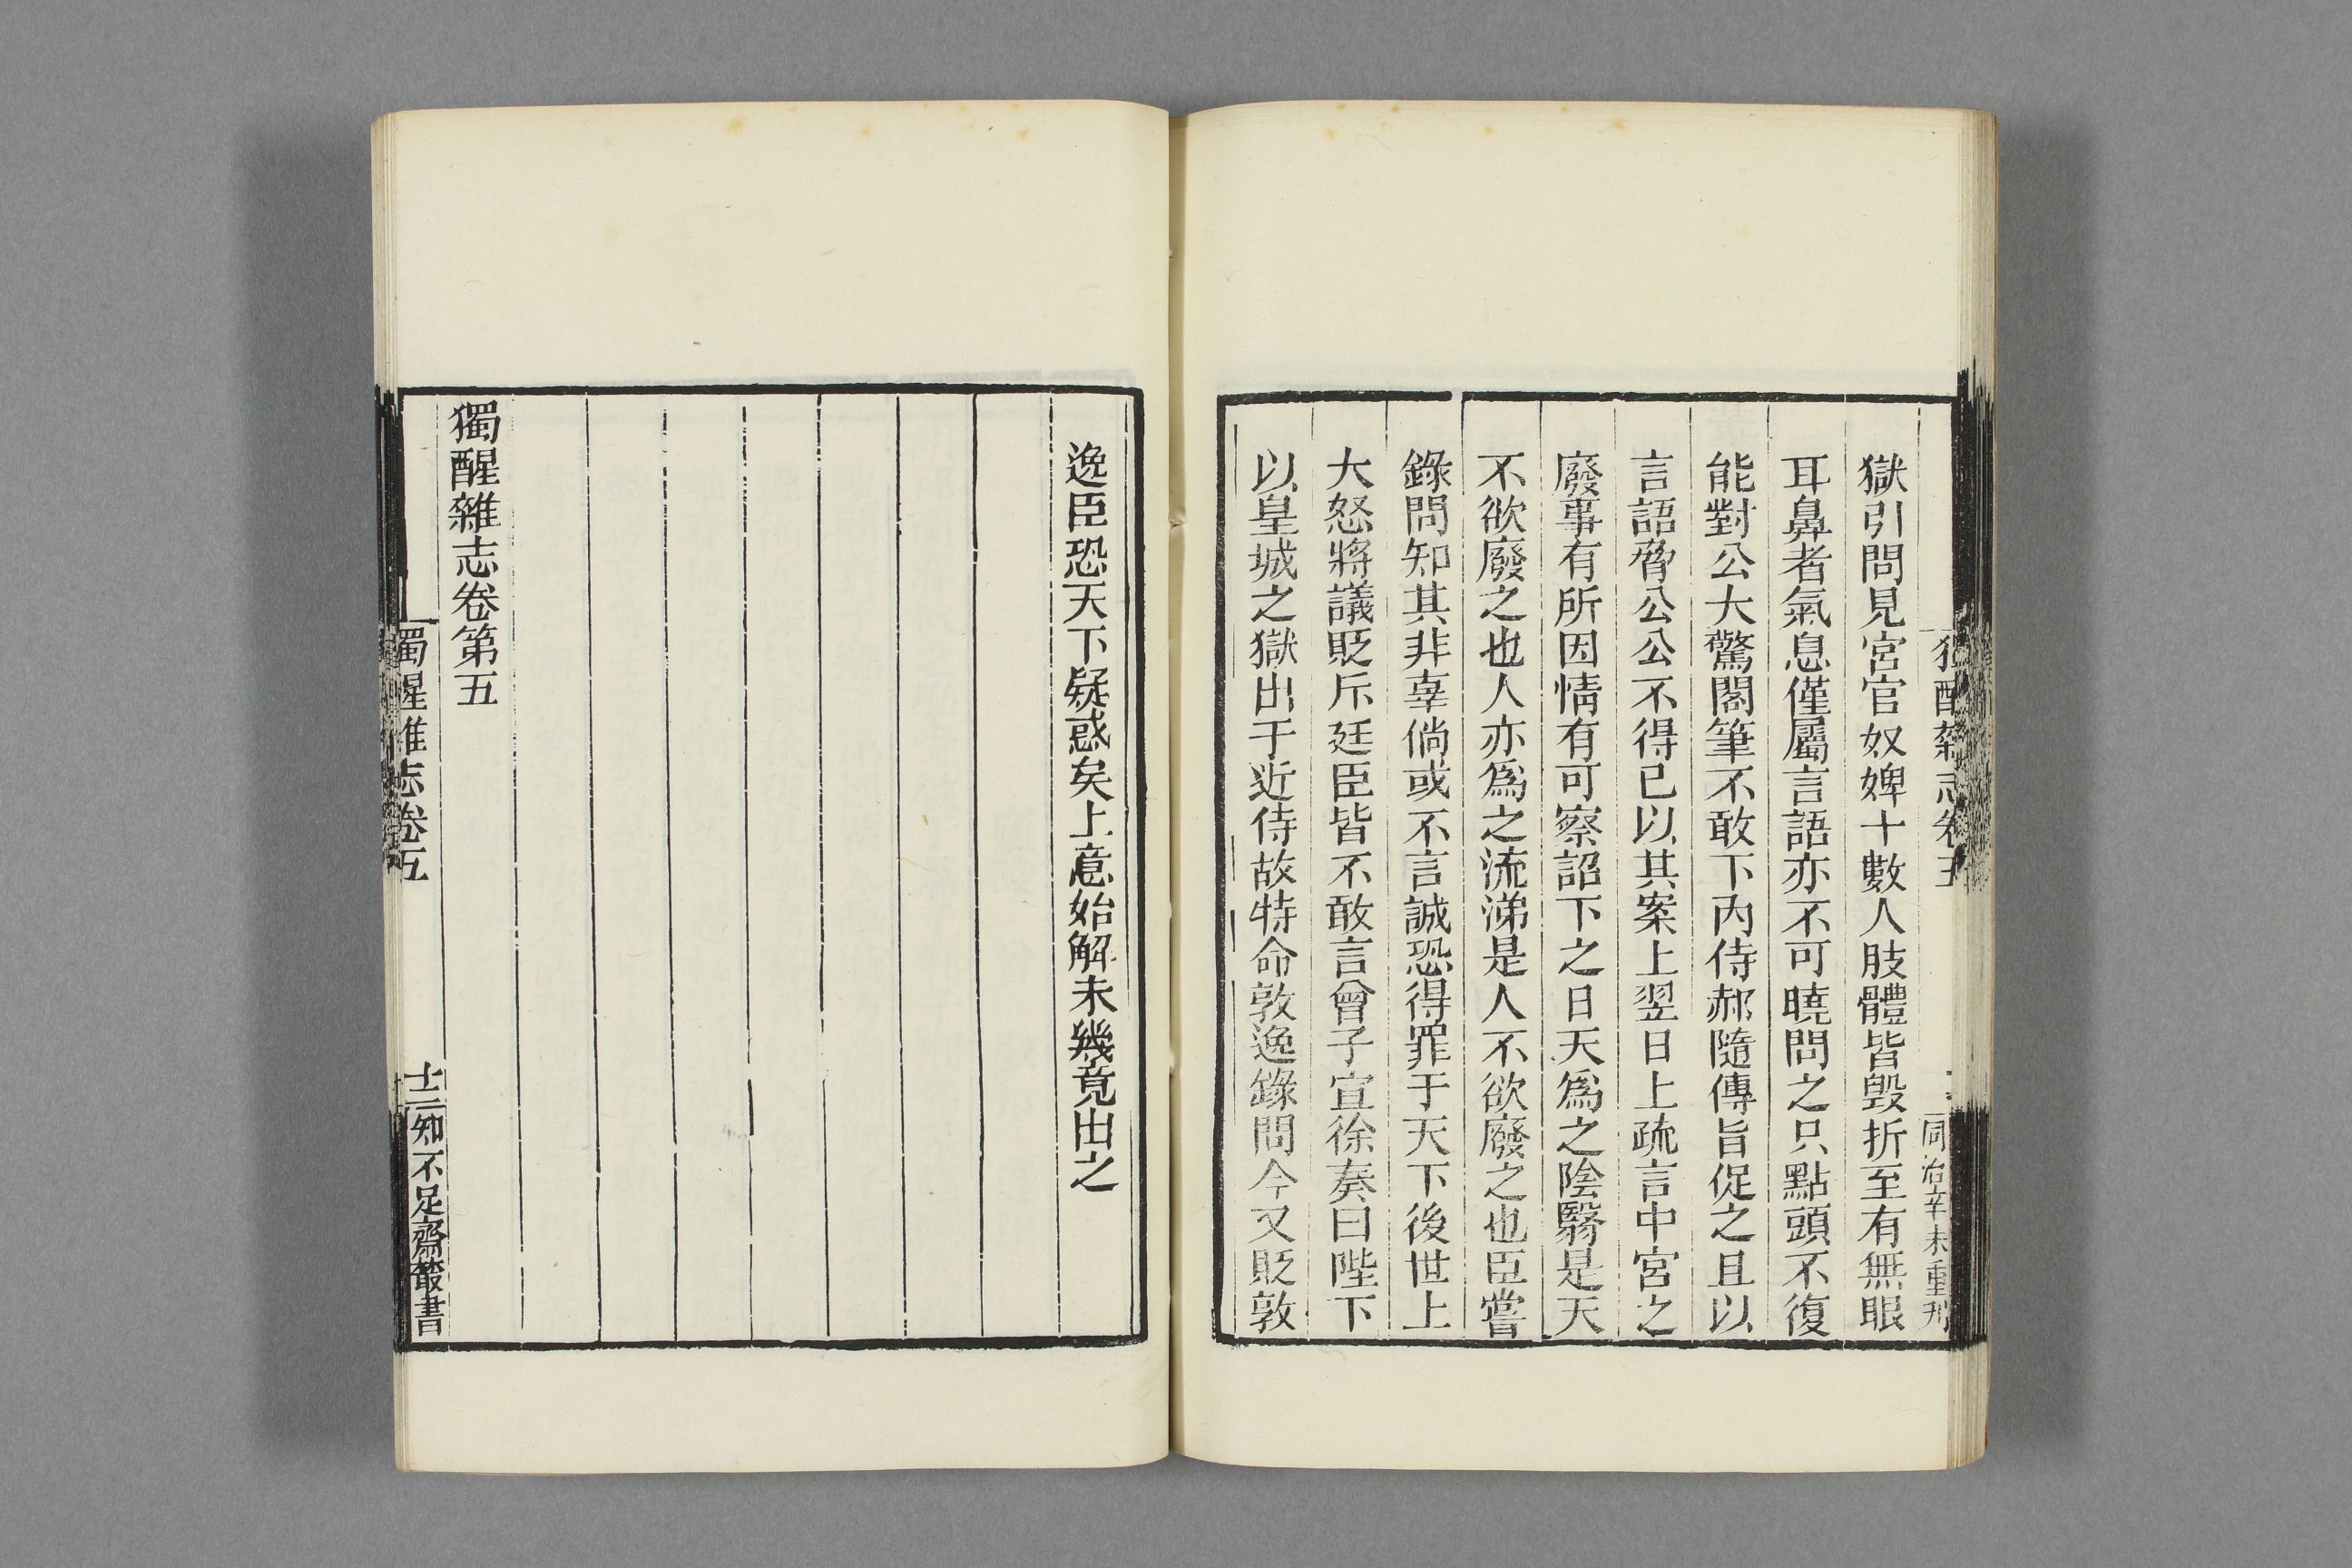 獄引問見宮官奴婢十數人肢體皆毀折至有無眼
耳鼻者氣息僅屬言語亦不可曉問之只點頭不復
能對公大驚閣筆不敢下內侍郝隨傳旨促之且以
言語脅公公不得已以其案上翌日上疏言中宮之
廢事有所因情有可察詔下之日天為之陰翳是天
不欲廢之也人亦為之流涕是人不欲廢之也臣嘗
錄問知其非辜倘或不言誠恐得罪于天下後世上
大怒將議貶斥廷臣皆不敢言曾子宣徐奏曰陛下
以皇城之獄出于近侍故特命敦逸錄問今又貶敦
逸臣恐天下疑惑矣上意始解未幾竟出之
獨醒雜志卷第五
獨醒雜志卷五
十二
知不足齋叢書
獨醒雜志卷五
同治辛未重刊